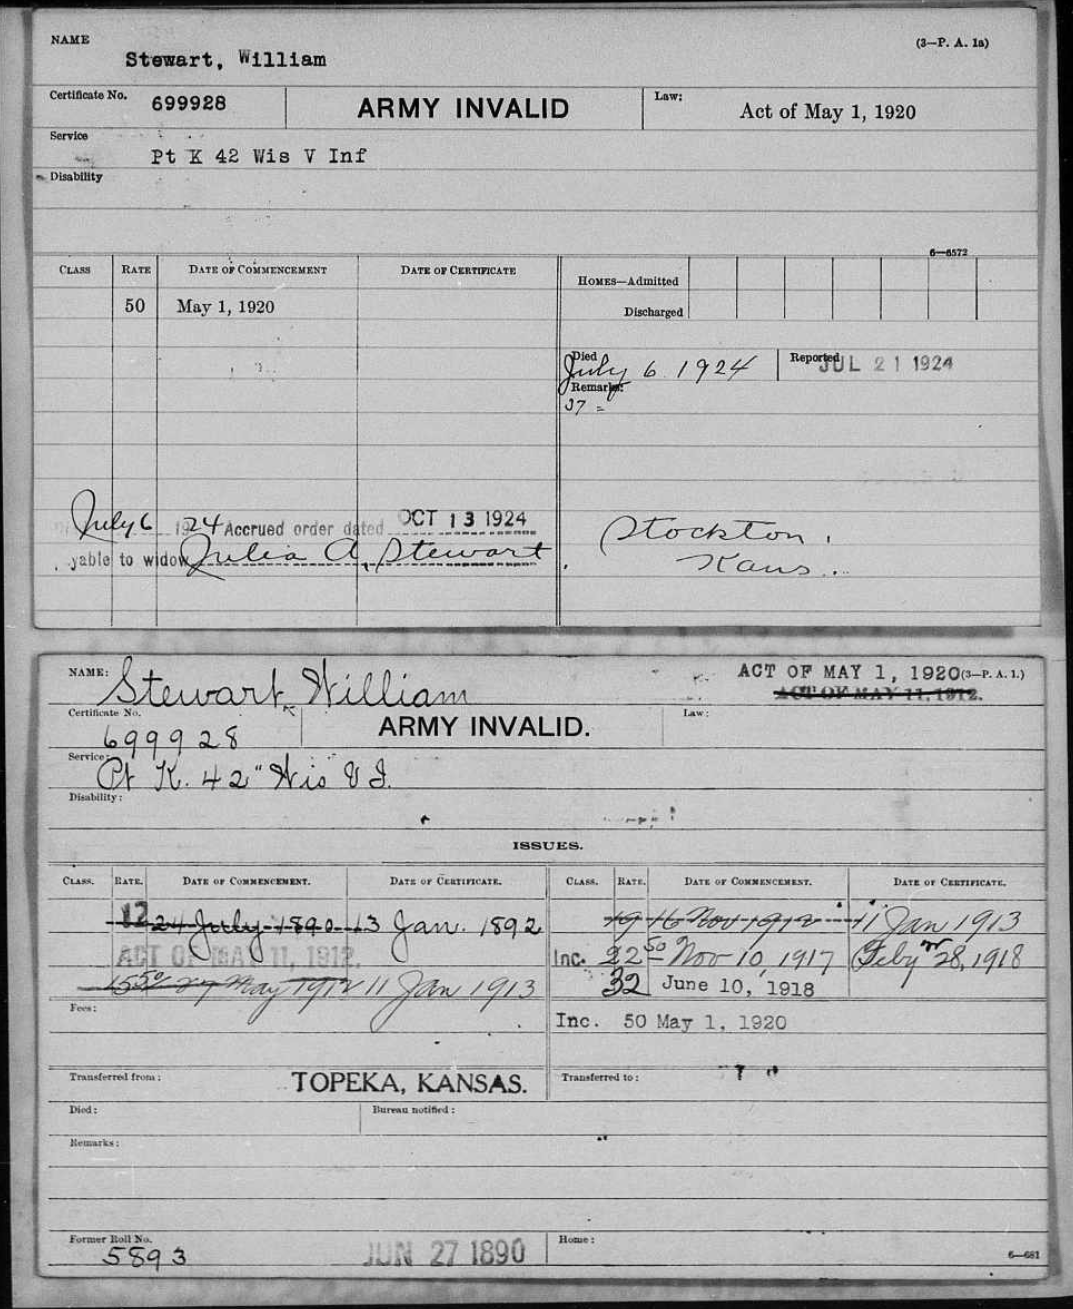 NAME (3—P. A. 1a)
Stewart, William
Certificate No. 699928 ARMY INVALID Law: Act of May 1, 1920
Service
Pt K 42 Wis V Inf
Disability
6—6572
CLASS RATE DATE OF COMMENCEMENT DATE OF CERTIFICATE HOMES—Admitted
50 May 1, 1920 Discharged
Died July 6 1924 Reported JUL 21 1924
Remarks:
37 =
July 6 1924 Accrued order dated OCT 13 1924
yable to widow Julia A. Stewart
Stockton,
Kans.
NAME: Stewart, William ACT OF MAY 1, 1920 (3—P. A. 1.)
ACT OF MAY 11, 1912.
Certificate No. 699928 ARMY INVALID. Law:
Service: Pt K. 42" Wis V I.
Disability:
ISSUES.
CLASS. RATE. DATE OF COMMENCEMENT. DATE OF CERTIFICATE. CLASS. RATE. DATE OF COMMENCEMENT. DATE OF CERTIFICATE.
12 24 July 1890 13 Jan. 1892 19 16 Nov 1912 11 Jan 1913
ACT OF MAY 11, 1912. Inc. 22 50 Nov 10, 1917 Feby 28, 1918
15 50 27 May 1912 11 Jan 1913 32 June 10, 1918
Fees: Inc. 50 May 1, 1920
Transferred from: TOPEKA, KANSAS. Transferred to:
Died: Bureau notified:
Remarks:
Former Roll No. 5893 JUN 27 1890 Home:
6—681